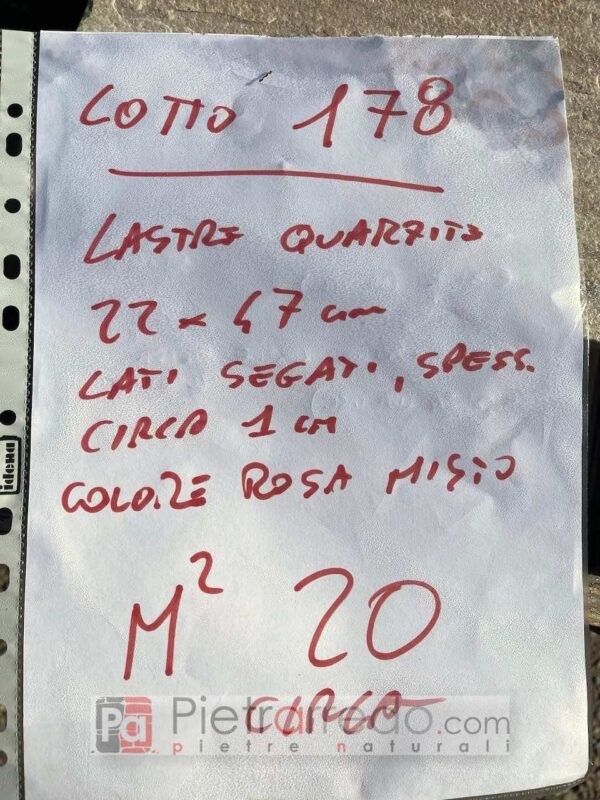 LOTTO 178
LASTRE QUARZITE
22 x 47 cm
LATI SEGATI, SPESS.
CIRCA 1 cm
COLORE ROSA MISTO
M² 20
CIRCA
Pa Pietrarredo.com
pietre naturali
idena